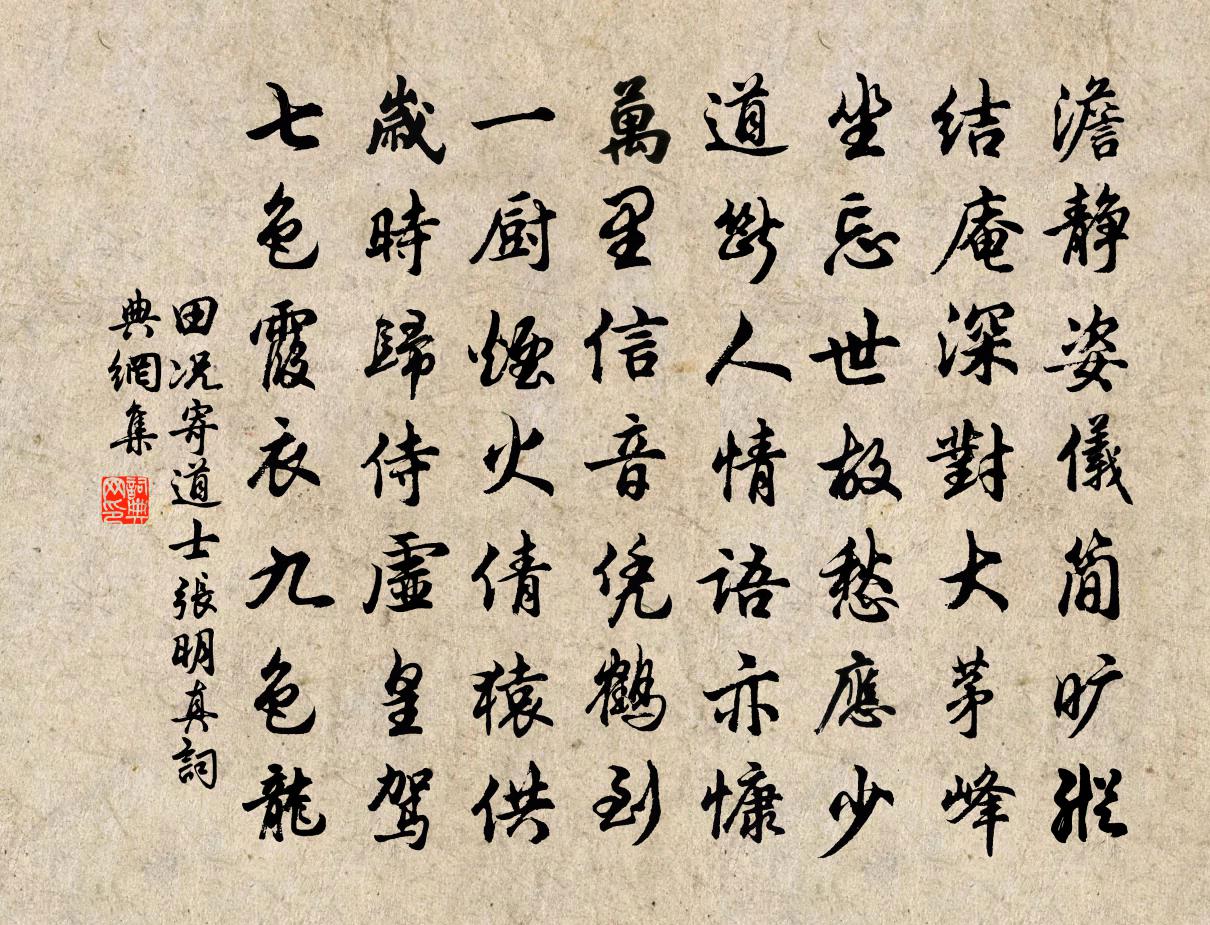 澹静姿儀简旷蹤
结庵深對大茅峰
坐忘世故愁應少
道斷人情語亦慵
萬里信音凭鶴到
一厨煙火倩猿供
歲時歸侍虛皇駕
七色霞衣九色龍
田况寄道士張明真詞
典網集
詞典网印